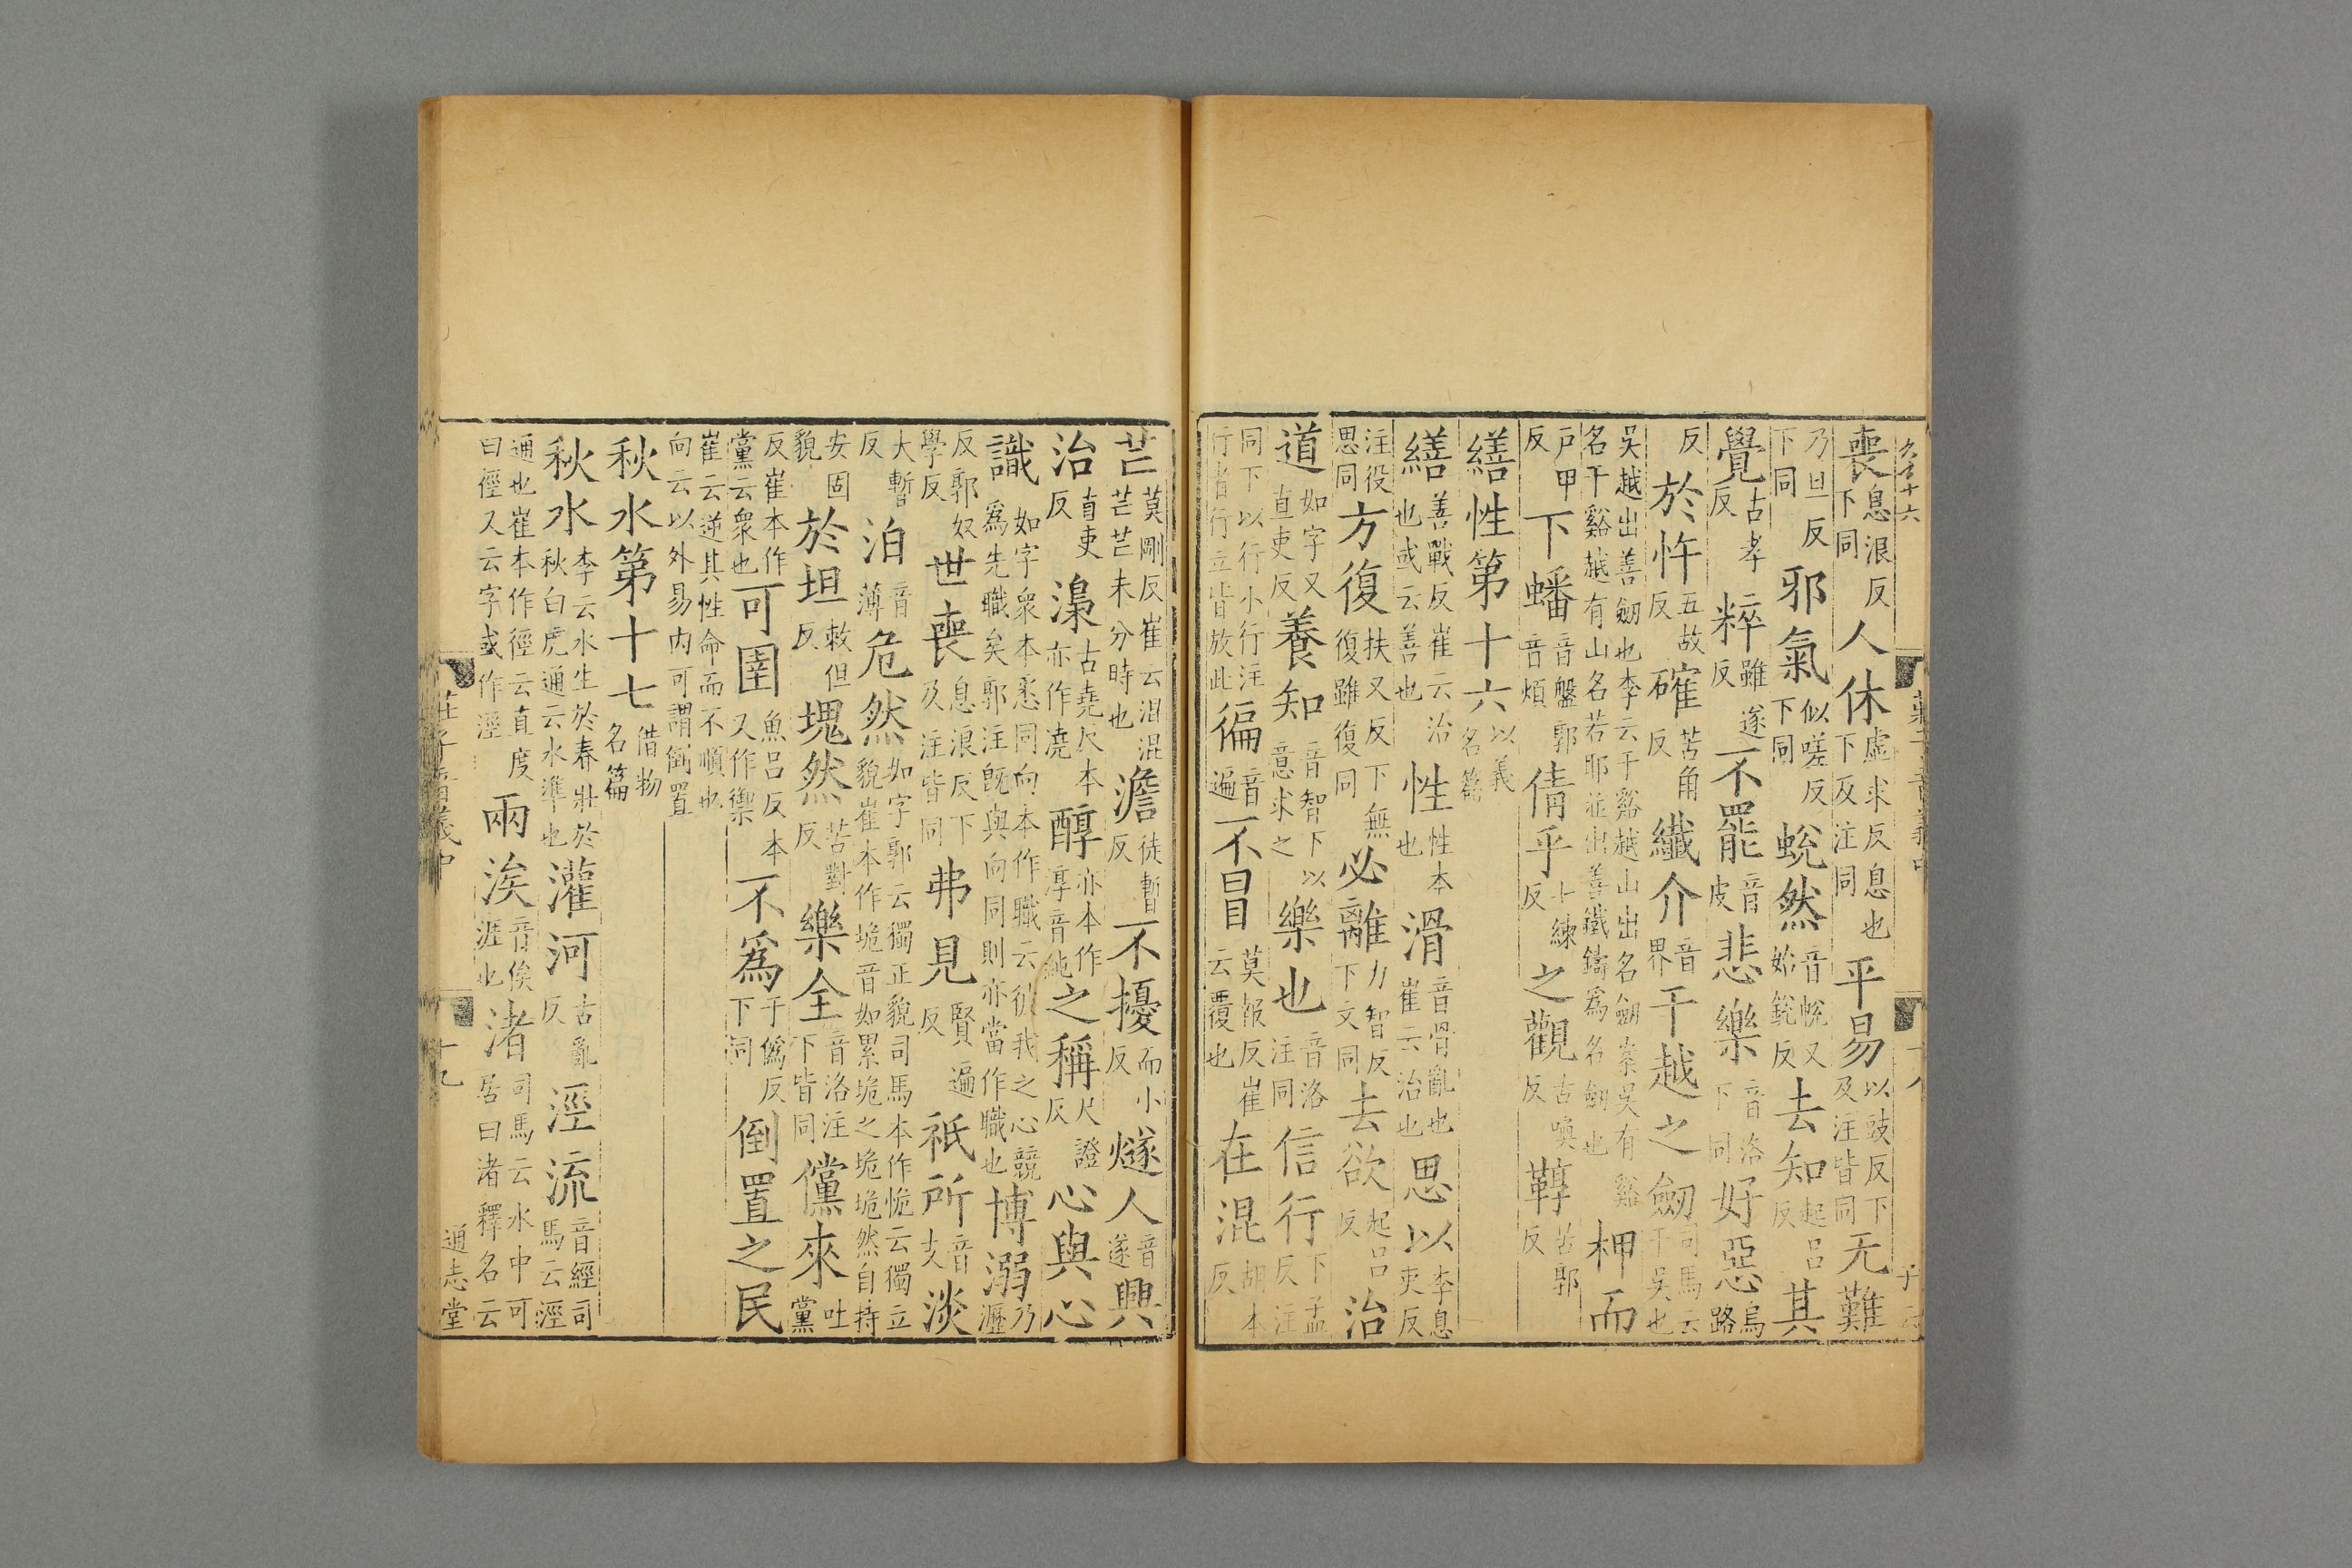 喪息浪反下同人休虛求反息也下及注同平易以豉反下及注皆同无難
乃旦反下同邪氣似嗟反下同蛻然音帨又始銳反去知起呂反其
覺古孝反粹雖遂反不罷音皮悲樂音洛下同好惡烏路
反於忤五故反確苦角反纖介音界干越之劒司馬云干吳也
吳越出善劒也李云于谿越山出名劒案吳有谿名干谿越有山名若耶並出善鐵鑄爲名劒也柙而
戶甲反下蟠音盤郭音煩倩乎七練反之觀古喚反鞟苦郭反
繕性第十六以義名篇
繕善戰反崔云治也或云善也性性本也滑音骨亂也崔云治也思以李息吏反
注役思同方復扶又反下無復雖復同必離力智反下文同去欲起呂反治
道如字又直吏反養知音智下以意求之樂也音洛注同信行下孟反注
同下以行小行注行者行立皆放此徧音遍不冒莫報反崔云覆也在混胡本反
芒莫剛反崔云混混芒芒未分時也澹徒暫反不擾而小反燧人音遂興
治直吏反澆古堯反本亦作澆醇亦本作淳音純之稱尺證反心與心
識如字衆本悉同向本作職云彼我之心競爲先職矣郭注旣與向同則亦當作職也博溺乃瀝
反郭奴學反世喪息浪反下及注皆同弗見賢遍反祇所音支淡
大暫反泊音薄危然如字郭云獨正貌司馬本作恑云獨立貌崔本作垝音如累垝之垝垝然自持
安固貌於坦敕但反塊然苦對反樂全音洛注下皆同儻來吐黨
反崔本作黨云衆也可圉魚呂反本又作禦不爲于僞反下同倒置之民
崔云逆其性命而不順也向云以外易內可謂倒置
秋水第十七借物名篇
秋水李云水生於春壯於秋白虎通云水準也灌河古亂反涇流音經司馬云涇
通也崔本作徑云直度曰徑又云字或作涇兩涘音俟涯也渚司馬云水中可居曰渚釋名云
莊子音義中
十九
通志堂